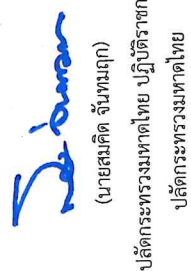 (นายสมคิด จันทมฤก)
ปลัดกระทรวงมหาดไทย ปฏิบัติราชก
ปลัดกระทรวงมหาดไทย